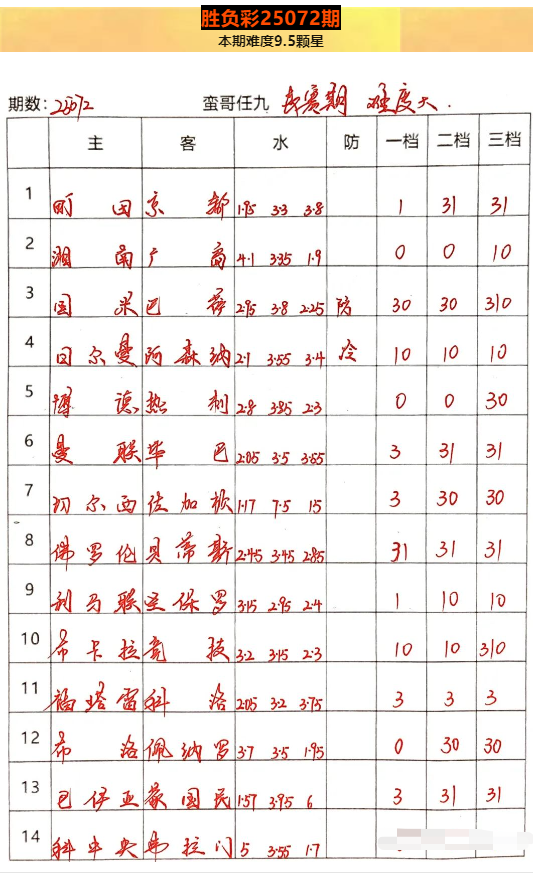 胜负彩25072期
本期难度9.5颗星
期数: 25072 蛮哥任九 长赛期 难度大.
主 客 水 防 一档 二档 三档
1 町田 京都 1.95 3.3 3.8 1 31 31
2 湘南 广岛 4.1 3.35 1.9 0 0 10
3 国米 巴萨 2.95 3.8 2.25 防 30 30 310
4 日尔曼 阿森纳 2.1 3.55 3.4 冷 10 10 10
5 博德 热刺 2.8 3.85 2.3 0 0 30
6 曼联 毕巴 2.05 3.5 3.55 3 31 31
7 切尔西 佐加顿 1.17 7.5 15 3 30 30
8 佛罗伦 贝蒂斯 2.45 3.45 2.85 31 31 31
9 利马联 圣保罗 3.15 2.95 2.4 1 10 10
10 布卡拉 竞技 3.2 3.15 2.3 10 10 310
11 福塔雷 科洛 2.05 3.2 3.75 3 3 3
12 希洛 佩纳罗 3.7 3.5 1.95 0 30 30
13 巴伊亚 蒙国民 1.57 3.95 6 3 31 31
14 科中央 弗拉门 5 3.55 1.7